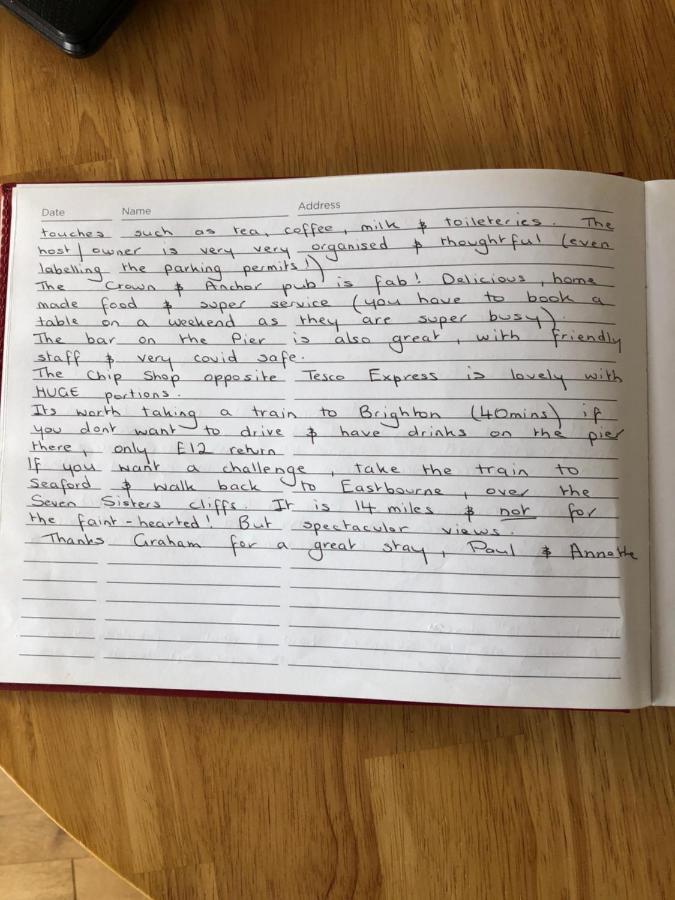 Date Name Address
touches such as tea, coffee, milk & toileteries. The
host/owner is very very organised & thoughtful (even
labelling the parking permits!)
The Crown & Anchor pub is fab! Delicious, home
made food & super service (you have to book a
table on a weekend as they are super busy).
The bar on the Pier is also great, with friendly
staff & very covid safe.
The Chip Shop opposite Tesco Express is lovely with
HUGE portions.
Its worth taking a train to Brighton (40mins) if
you dont want to drive & have drinks on the pier
there, only £12 return
If you want a challenge, take the train to
Seaford & walk back to Eastbourne, over the
Seven Sisters cliffs. It is 14 miles & not for
the faint-hearted! But spectacular views.
Thanks Graham for a great stay, Paul & Annette